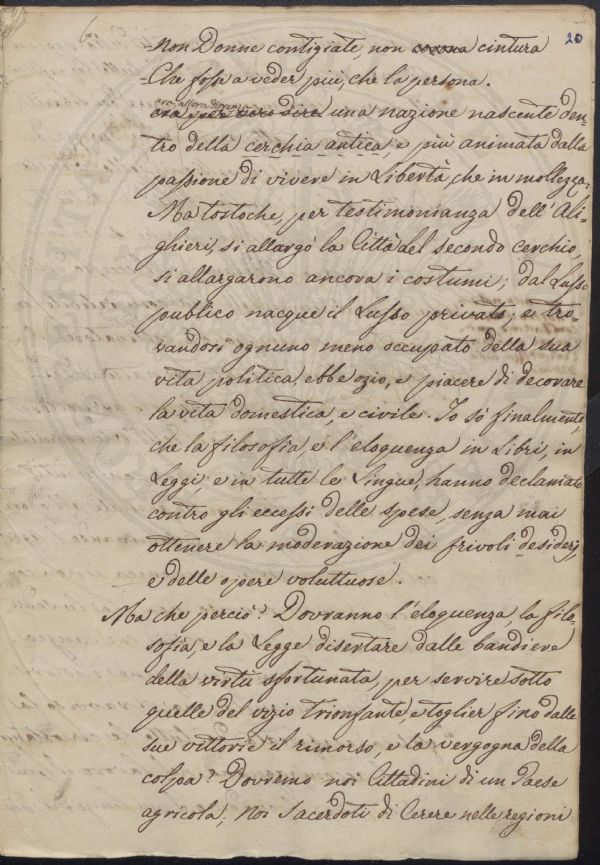 6
20
=Non Donne contigiate, non corona cintura
=Che fosse a veder più, che la persona.
era allora Fiorenza
era per vero dire una nazione nascente den-
tro della cerchia antica, e più animata dalla
passione di vivere in Libertà, che in mollezza.
Ma tostoche, per testimonianza dell'Ali-
ghieri, si allargò la Città del secondo cerchio,
si allargarono ancora i costumi; dal Lusso
publico nacque il Lusso privato; e tro-
vandosi ognuno meno occupato della sua
vita politica, ebbe ozio, e piacere di decorare
la vita domestica, e civile. Io sò finalmente,
che la filosofia, e l'eloquenza in Libri, in
Leggi, e in tutte le Lingue, hanno declamato
contro gli eccessi delle spese, senza mai
ottenere la moderazione dei frivoli desiderj,
e delle opere voluttuose.
Ma che perciò? Dovranno l'eloquenza, la filo-
sofia, e la Legge disertare dalle bandiere
della virtù sfortunata, per servire sotto
quelle del vizio trionfante, e toglier fino dalle
sue vittorie il rimorso, e la vergogna della
colpa? Dovremo noi Cittadini di un Paese
agricola; Noi Sacerdoti di Cerere nelle regioni